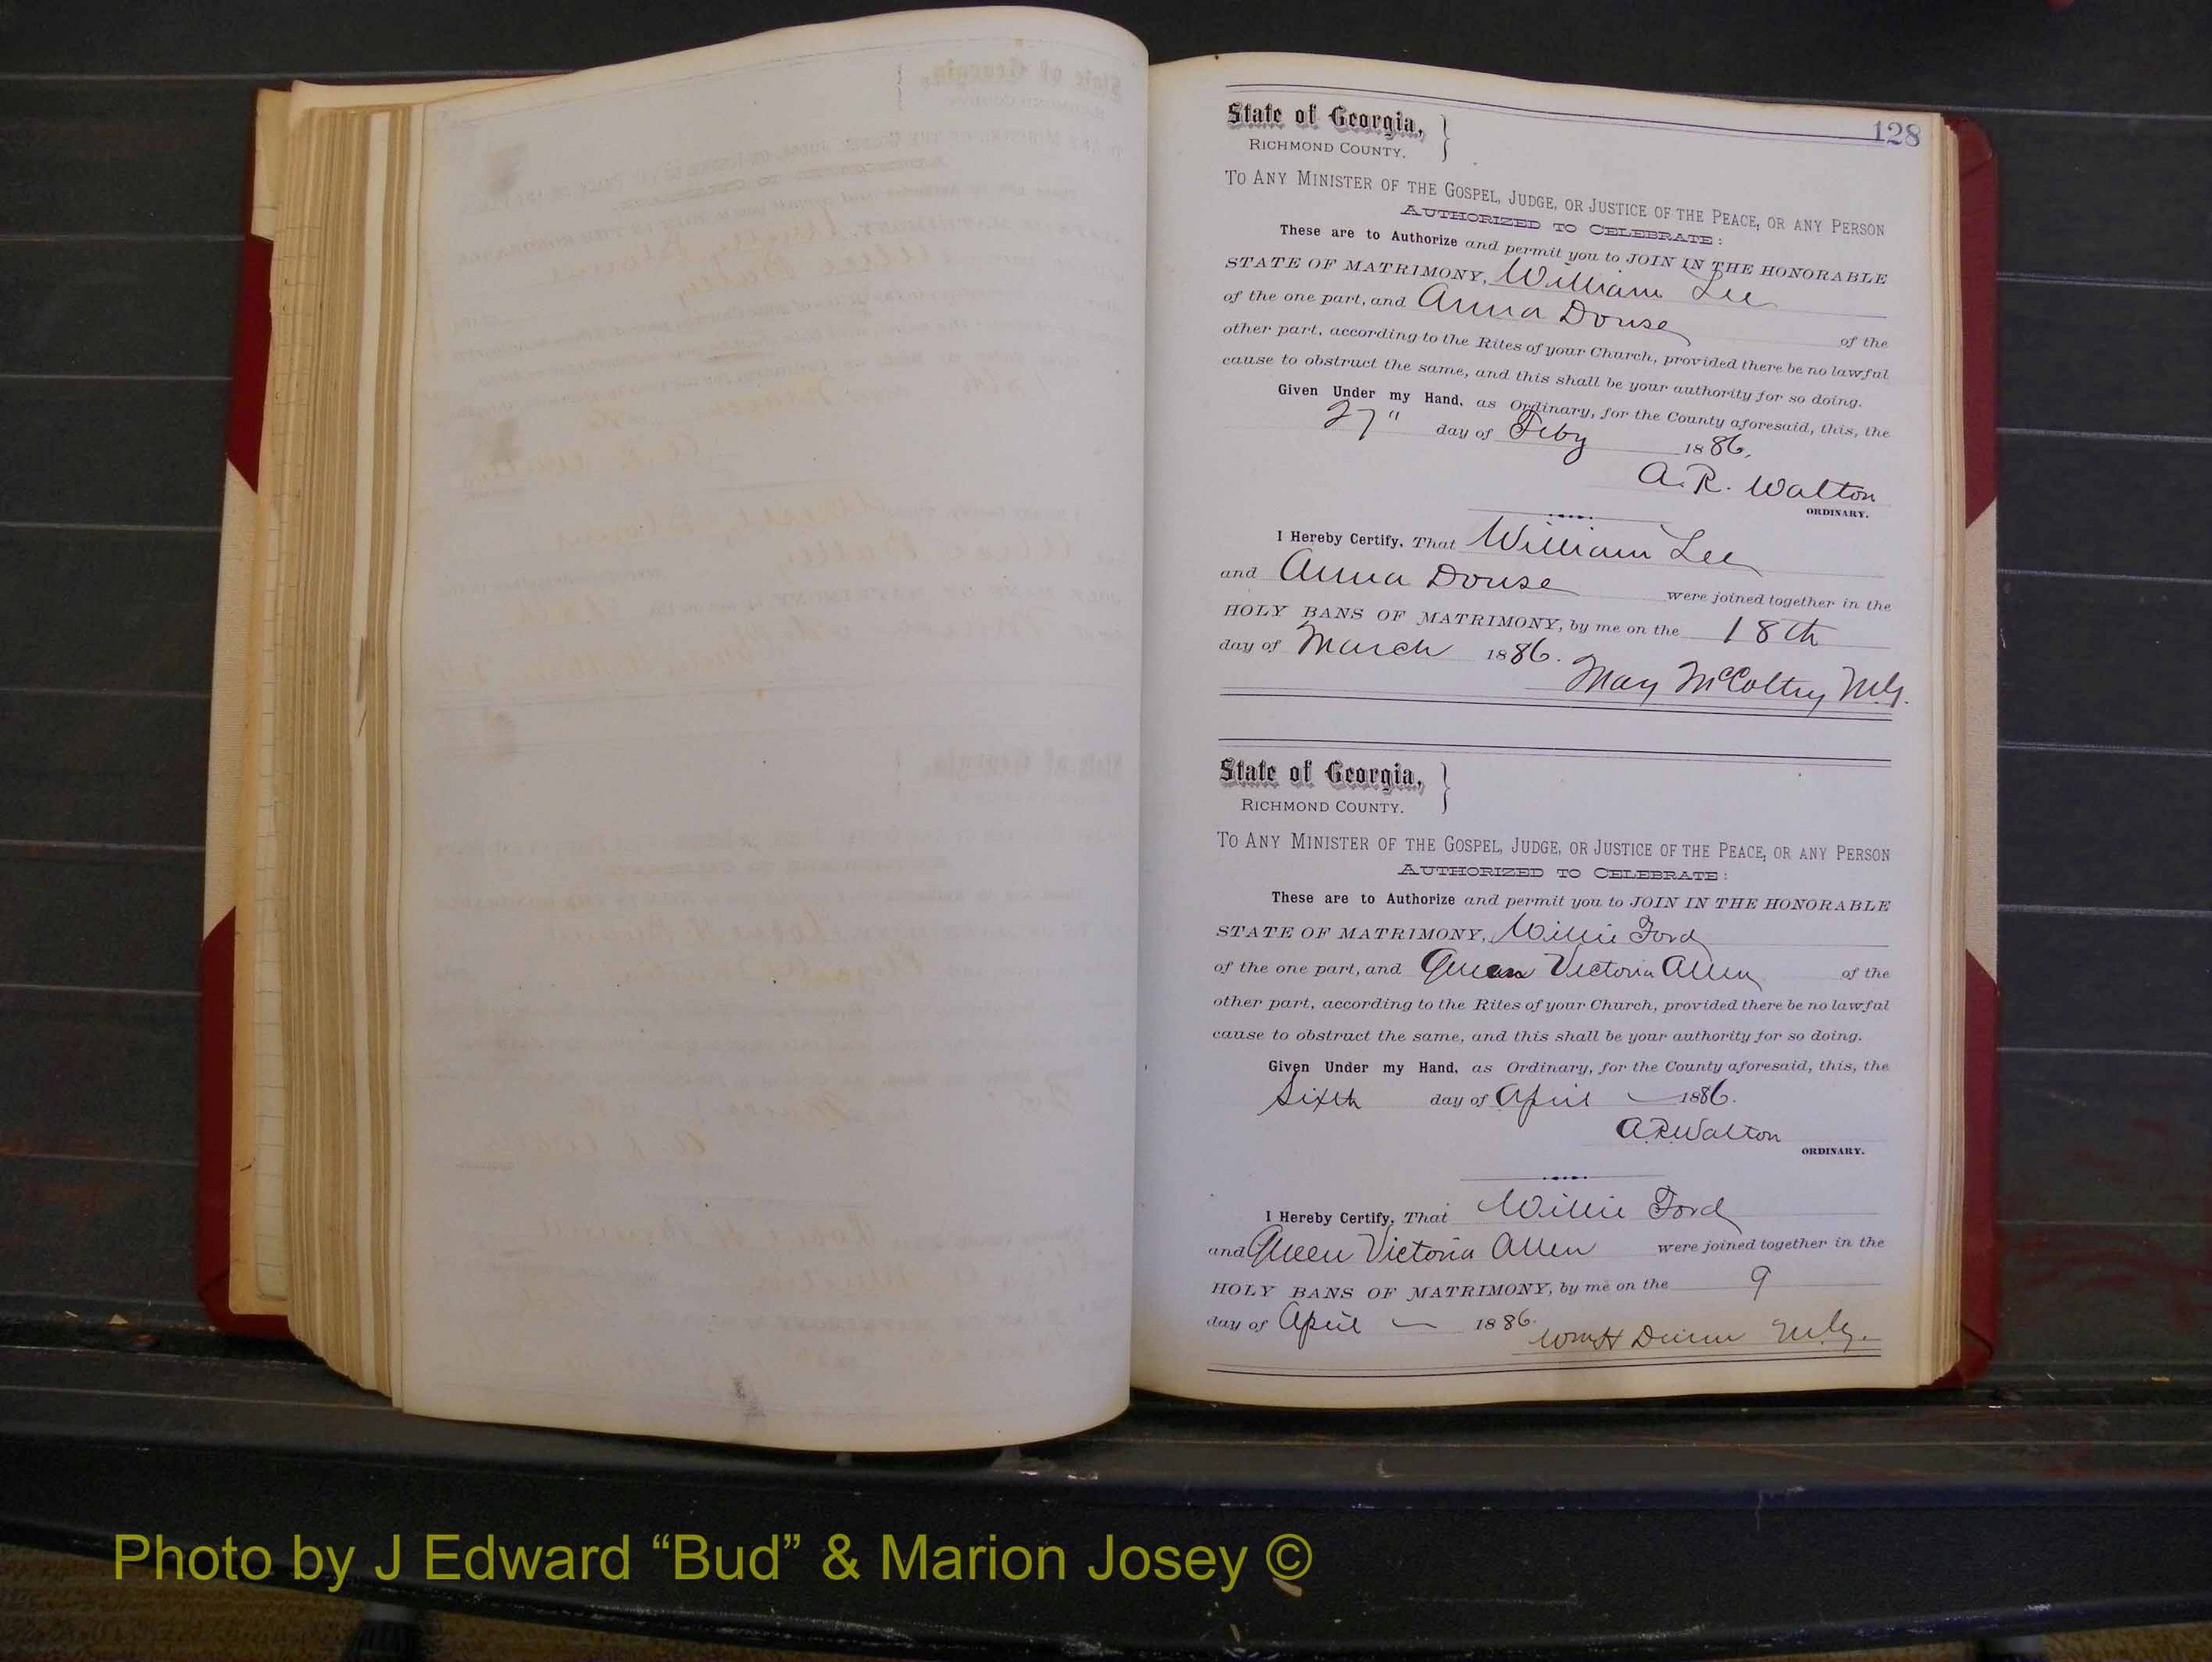 128
State of Georgia,
RICHMOND COUNTY.
TO ANY MINISTER OF THE GOSPEL, JUDGE, OR JUSTICE OF THE PEACE, OR ANY PERSON
AUTHORIZED TO CELEBRATE:
These are to Authorize and permit you to JOIN IN THE HONORABLE
STATE OF MATRIMONY, William Lee
of the one part, and Anna Douse of the
other part, according to the Rites of your Church, provided there be no lawful
cause to obstruct the same, and this shall be your authority for so doing.
Given Under my Hand, as Ordinary, for the County aforesaid, this, the
27" day of Feby 1886,
A. R. Walton
ORDINARY.
I Hereby Certify, That William Lee
and Anna Douse were joined together in the
HOLY BANS OF MATRIMONY, by me on the 18th
day of March 1886.
May McColtry M.G.
State of Georgia,
RICHMOND COUNTY.
TO ANY MINISTER OF THE GOSPEL, JUDGE, OR JUSTICE OF THE PEACE, OR ANY PERSON
AUTHORIZED TO CELEBRATE:
These are to Authorize and permit you to JOIN IN THE HONORABLE
STATE OF MATRIMONY, Willie Ford
of the one part, and Queen Victoria Allen of the
other part, according to the Rites of your Church, provided there be no lawful
cause to obstruct the same, and this shall be your authority for so doing.
Given Under my Hand, as Ordinary, for the County aforesaid, this, the
Sixth day of April 1886.
A.R.Walton
ORDINARY.
I Hereby Certify, That Willie Ford
and Queen Victoria Allen were joined together in the
HOLY BANS OF MATRIMONY, by me on the 9
day of April 1886.
Wm H Dunn M.G.
Photo by J Edward “Bud” & Marion Josey ©